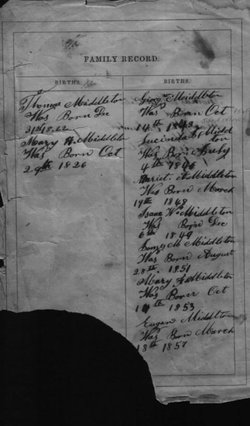 FAMILY RECORD.
BIRTHS.
Thomas Middleton
Was Born Dec
31st 1822
Mary A. Middleton
Was Born Oct
29th 1826
BIRTHS.
Middleton
Was Born Oct
14th
Was Born July
4th
Harriet A. Middleton
Was Born March
19th 1848
Isaac W. Middleton
Was Born Dec
6th 1849
M. Middleton
Was Born August
28th 1851
Mary A. Middleton
Was Born Oct
14th 1853
Eugene Middleton
Was Born March
13th 1857